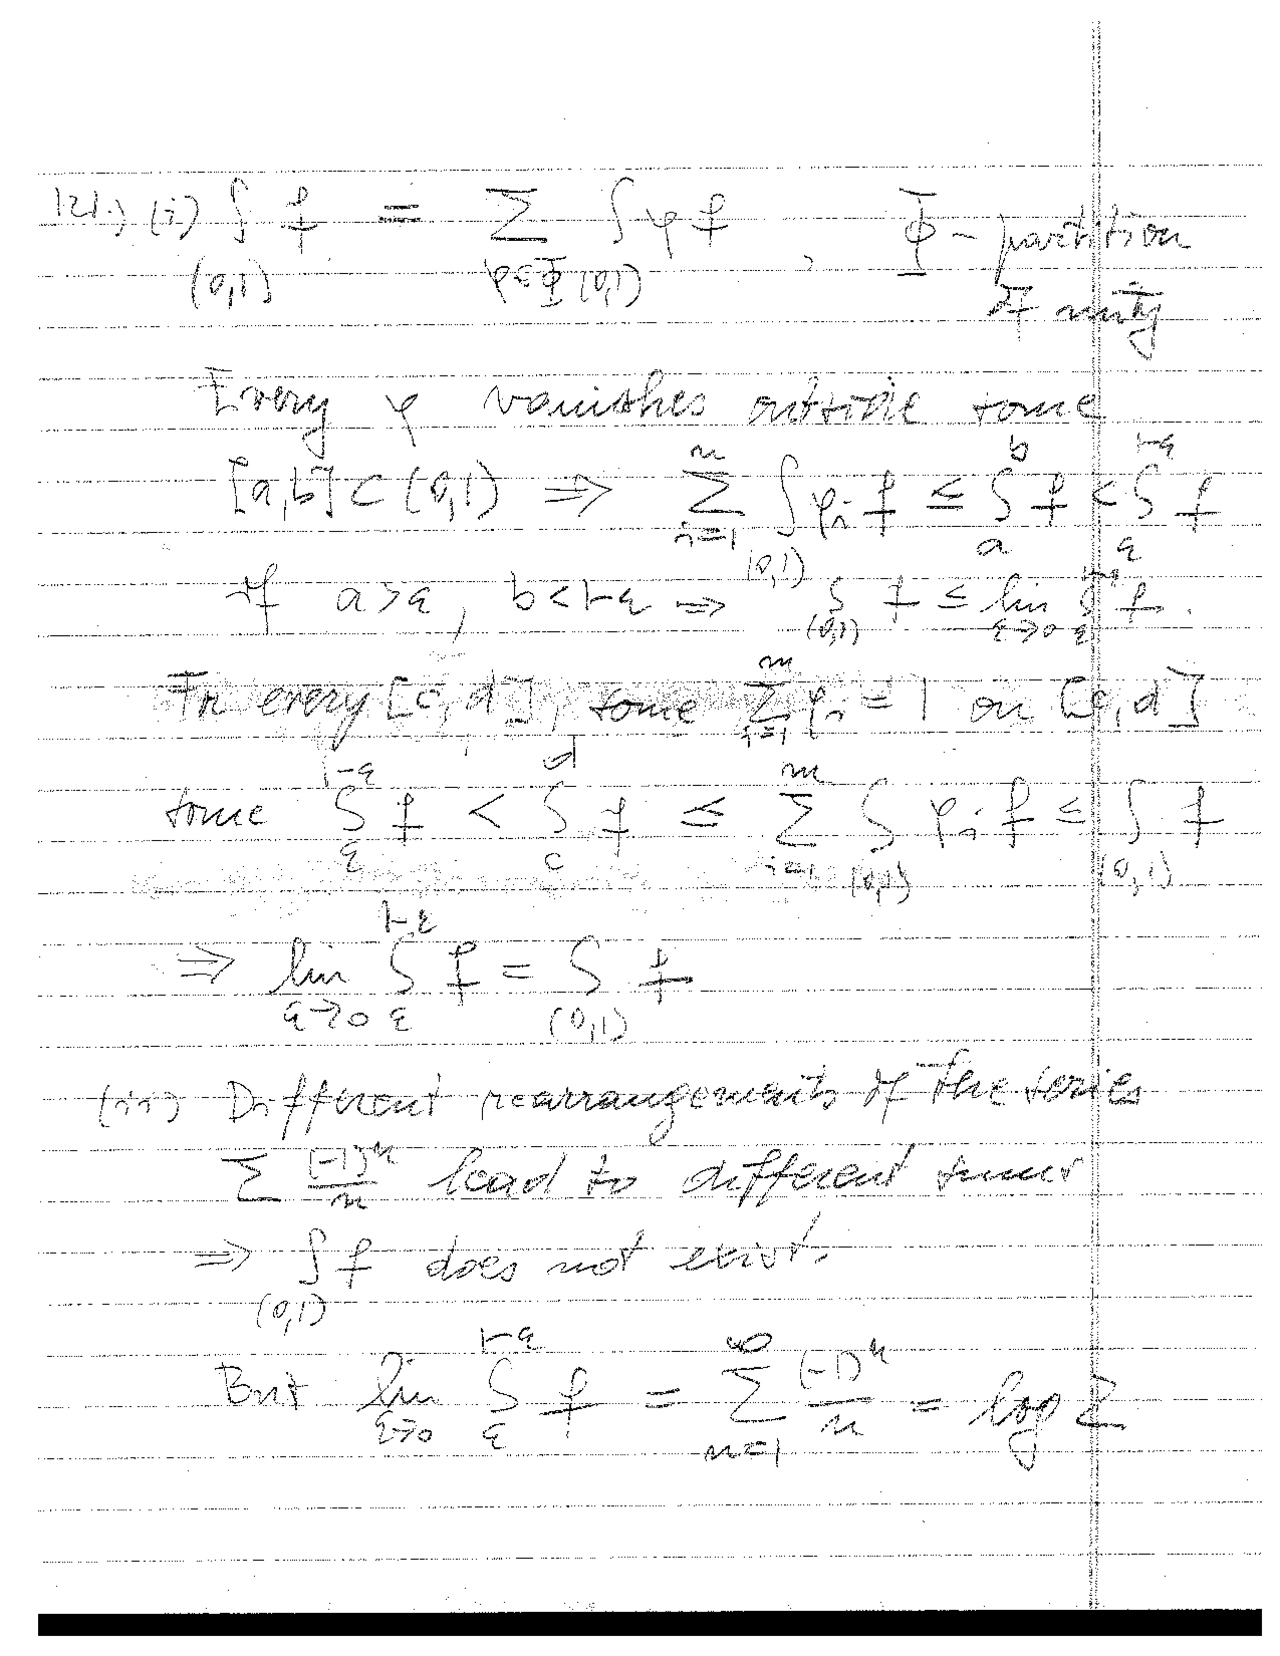 121.) (i) ∫_(0,1) f = Σ_{φ∈Φ} ∫_(0,1) φf , Φ - partition
of unity
Every φ vanishes outside some
[a,b] ⊂ (0,1) ⇒ Σ_{i=1}^n ∫_(0,1) φ_i f ≤ ∫_a^b f < ∫_ε^{1-ε} f
if a>ε, b<1-ε ⇒ ∫_(0,1) f ≤ lim_{ε→0} ∫_ε^{1-ε} f.
In every [c,d], some Σ_{i=1}^m φ_i = 1 on [c,d]
some ∫_ε^{1-ε} f < ∫_c^d f ≤ Σ_{i=1}^m ∫_(0,1) φ_i f ≤ ∫_(0,1) f
⇒ lim_{ε→0} ∫_ε^{1-ε} f = ∫_(0,1) f
(ii) Different rearrangements of the series
Σ (-1)^n/n lead to different sums
⇒ ∫_(0,1) f does not exist.
But lim_{ε→0} ∫_ε^{1-ε} f = Σ_{n=1}^∞ (-1)^n/n = log 2